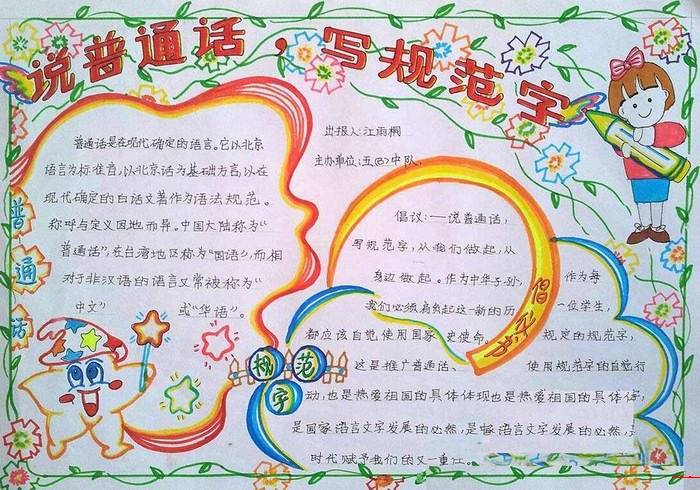 说普通话,写规范字
普通话
普通话是在现代确定的语言。它以北京
语言为标准音,以北京话为基础方言,以在
现代确定的白话文著作为语法规范。
称呼与定义因地而异。中国大陆称为"
普通话",在台湾地区称为"国语",而相
对于非汉语的语言又常被称为"
中文" 或"华语"。
规范字
出报人:江雨桐
主办单位:五(8)中队
倡议:——说普通话,
写规范字,从我们做起,从
身边做起。作为中华子孙, 作为每
我们必须肩负起这一新的历 一位学生,
都应该自觉使用国家 史使命。 规定的规范字,
这是推广普通话、 使用规范字的自觉行
动,也是热爱祖国的具体体现也是热爱祖国的具体体
是国家语言文字发展的必然,是 语言文字发展的必然,
时代赋予我们的又一重
倡